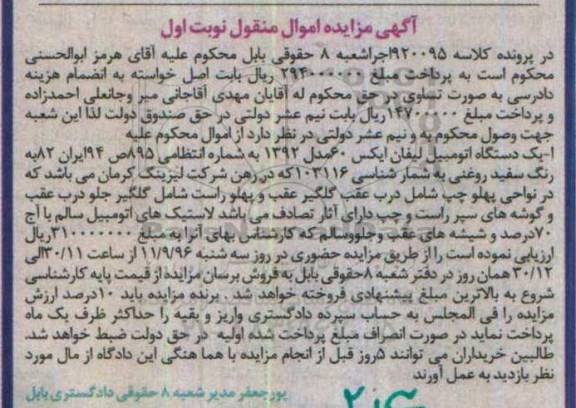 آگهی مزایده اموال منقول نوبت اول
در پرونده کلاسه ۹۲۰۰۹۵اجراشعبه ۸ حقوقی بابل محکوم علیه آقای هرمز ابوالحسنی
محکوم است به پرداخت مبلغ ۲۹۴۰۰۰۰۰۰ ریال بابت اصل خواسته به انضمام هزینه
دادرسی به صورت تساوی در حق محکوم له آقایان مهدی آقاجانی میر وجانعلی احمدزاده
و پرداخت مبلغ ۱۴۷۰۰۰۰۰ریال بابت نیم عشر دولتی در حق صندوق دولت لذا این شعبه
جهت وصول محکوم به و نیم عشر دولتی در نظر دارد از اموال محکوم علیه
۱-یک دستگاه اتومبیل لیفان ایکس ۶۰مدل ۱۳۹۲ به شماره انتظامی ۸۹۵ص ۹۴ایران ۸۲به
رنگ سفید روغنی به شمار شناسی ۱۰۳۱۱۶که در رهن شرکت لیزینگ کرمان می باشد که
در نواحی پهلو چپ شامل درب عقب گلگیر عقب و پهلو راست شامل گلگیر جلو درب عقب
و گوشه های سپر راست و چپ دارای آثار تصادف می باشد لاستیک های اتومبیل سالم با آج
۷۰درصد و شیشه های عقب وجلووسالم که کارشناس بهای آنرا به مبلغ ۳۱۰۰۰۰۰۰۰ریال
ارزیابی نموده است را از طریق مزایده حضوری در روز سه شنبه ۱۱/۹/۹۶ از ساعت ۱۱/۳۰الی
۳۰/۱۲ همان روز در دفتر شعبه ۸حقوقی بابل به فروش برسان مزایده از قیمت پایه کارشناسی
شروع به بالاترین مبلغ پیشنهادی فروخته خواهد شد . برنده مزایده باید ۱۰درصد ارزش
مزایده را فی المجلس به حساب سپرده دادگستری واریز و بقیه را حداکثر ظرف یک ماه
پرداخت نماید در صورت انصراف مبلغ پرداخت شده اولیه در حق دولت ضبط خواهد شد.
طالبین خریداران می توانند ۵روز قبل از انجام مزایده با هما هنگی این دادگاه از مال مورد
نظر بازدید به عمل آورند
پورجعفر مدیر شعبه ۸ حقوقی دادگستری بابل